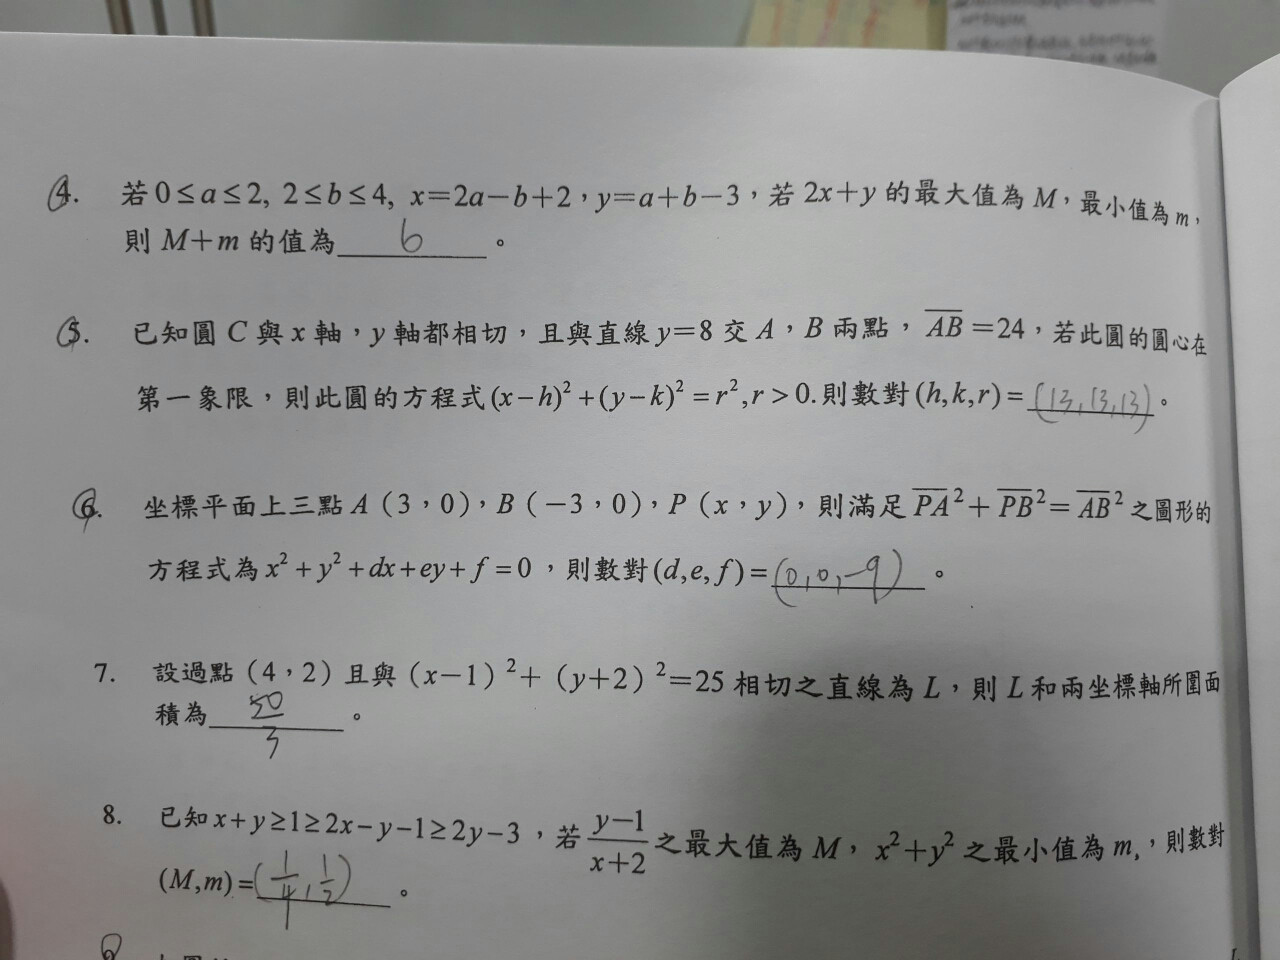 4. 若 0≤a≤2, 2≤b≤4, x=2a−b+2，y=a+b−3，若 2x+y 的最大值為 M，最小值為 m，
則 M+m 的值為 6 。
5. 已知圓 C 與 x 軸，y 軸都相切，且與直線 y=8 交 A，B 兩點，\overline{AB}=24，若此圓的圓心在
第一象限，則此圓的方程式 (x−h)²+(y−k)²=r², r>0. 則數對 (h,k,r)= (13,13,13) 。
6. 坐標平面上三點 A（3，0），B（−3，0），P（x，y），則滿足 \overline{PA}²+\overline{PB}²=\overline{AB}² 之圖形的
方程式為 x²+y²+dx+ey+f=0，則數對 (d,e,f)= (0,0,−9) 。
7. 設過點（4，2）且與（x−1）²+（y+2）²=25 相切之直線為 L，則 L 和兩坐標軸所圍面
積為 50/3 。
8. 已知 x+y≥1≥2x−y−1≥2y−3，若 (y−1)/(x+2) 之最大值為 M，x²+y² 之最小值為 m,，則數對
(M,m)= (1/4, 1/2) 。